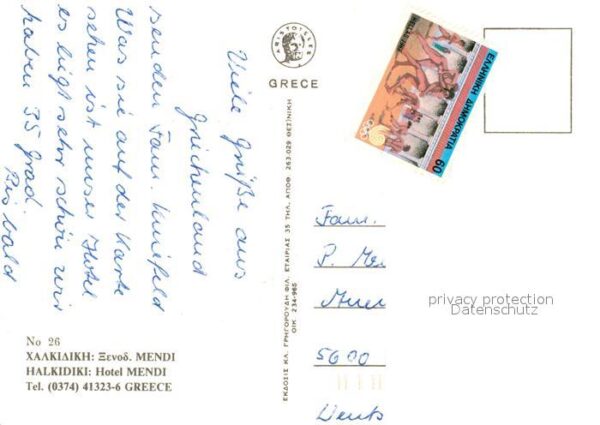 Viele Grüße aus
Griechenland
senden Fam. Kniefeld
Was sie auf der Karte
sehen ist unser Hotel
es liegt sehr schön wir
haben 35 Grad.
Bis bald
No 26
ΧΑΛΚΙΔΙΚΗ: Ξενοδ. MENDI
HALKIDIKI: Hotel MENDI
Tel. (0374) 41323-6 GREECE
ARISTOTELES
GRECE
ΕΚΔΟΣΙΣ ΚΛ. ΓΡΗΓΟΡΟΥΔΗ ΦΙΛ. ΕΤΑΙΡΙΑΣ 35 ΤΗΛ. ΑΠΟΘ. 263.029 ΘΕΣ/ΝΙΚΗ
ΟΙΚ. 234-965
ΕΛΛΗΝΙΚΗ ΔΗΜΟΚΡΑΤΙΑ
60
Fam.
P. Me
5600
privacy protection
Datenschutz